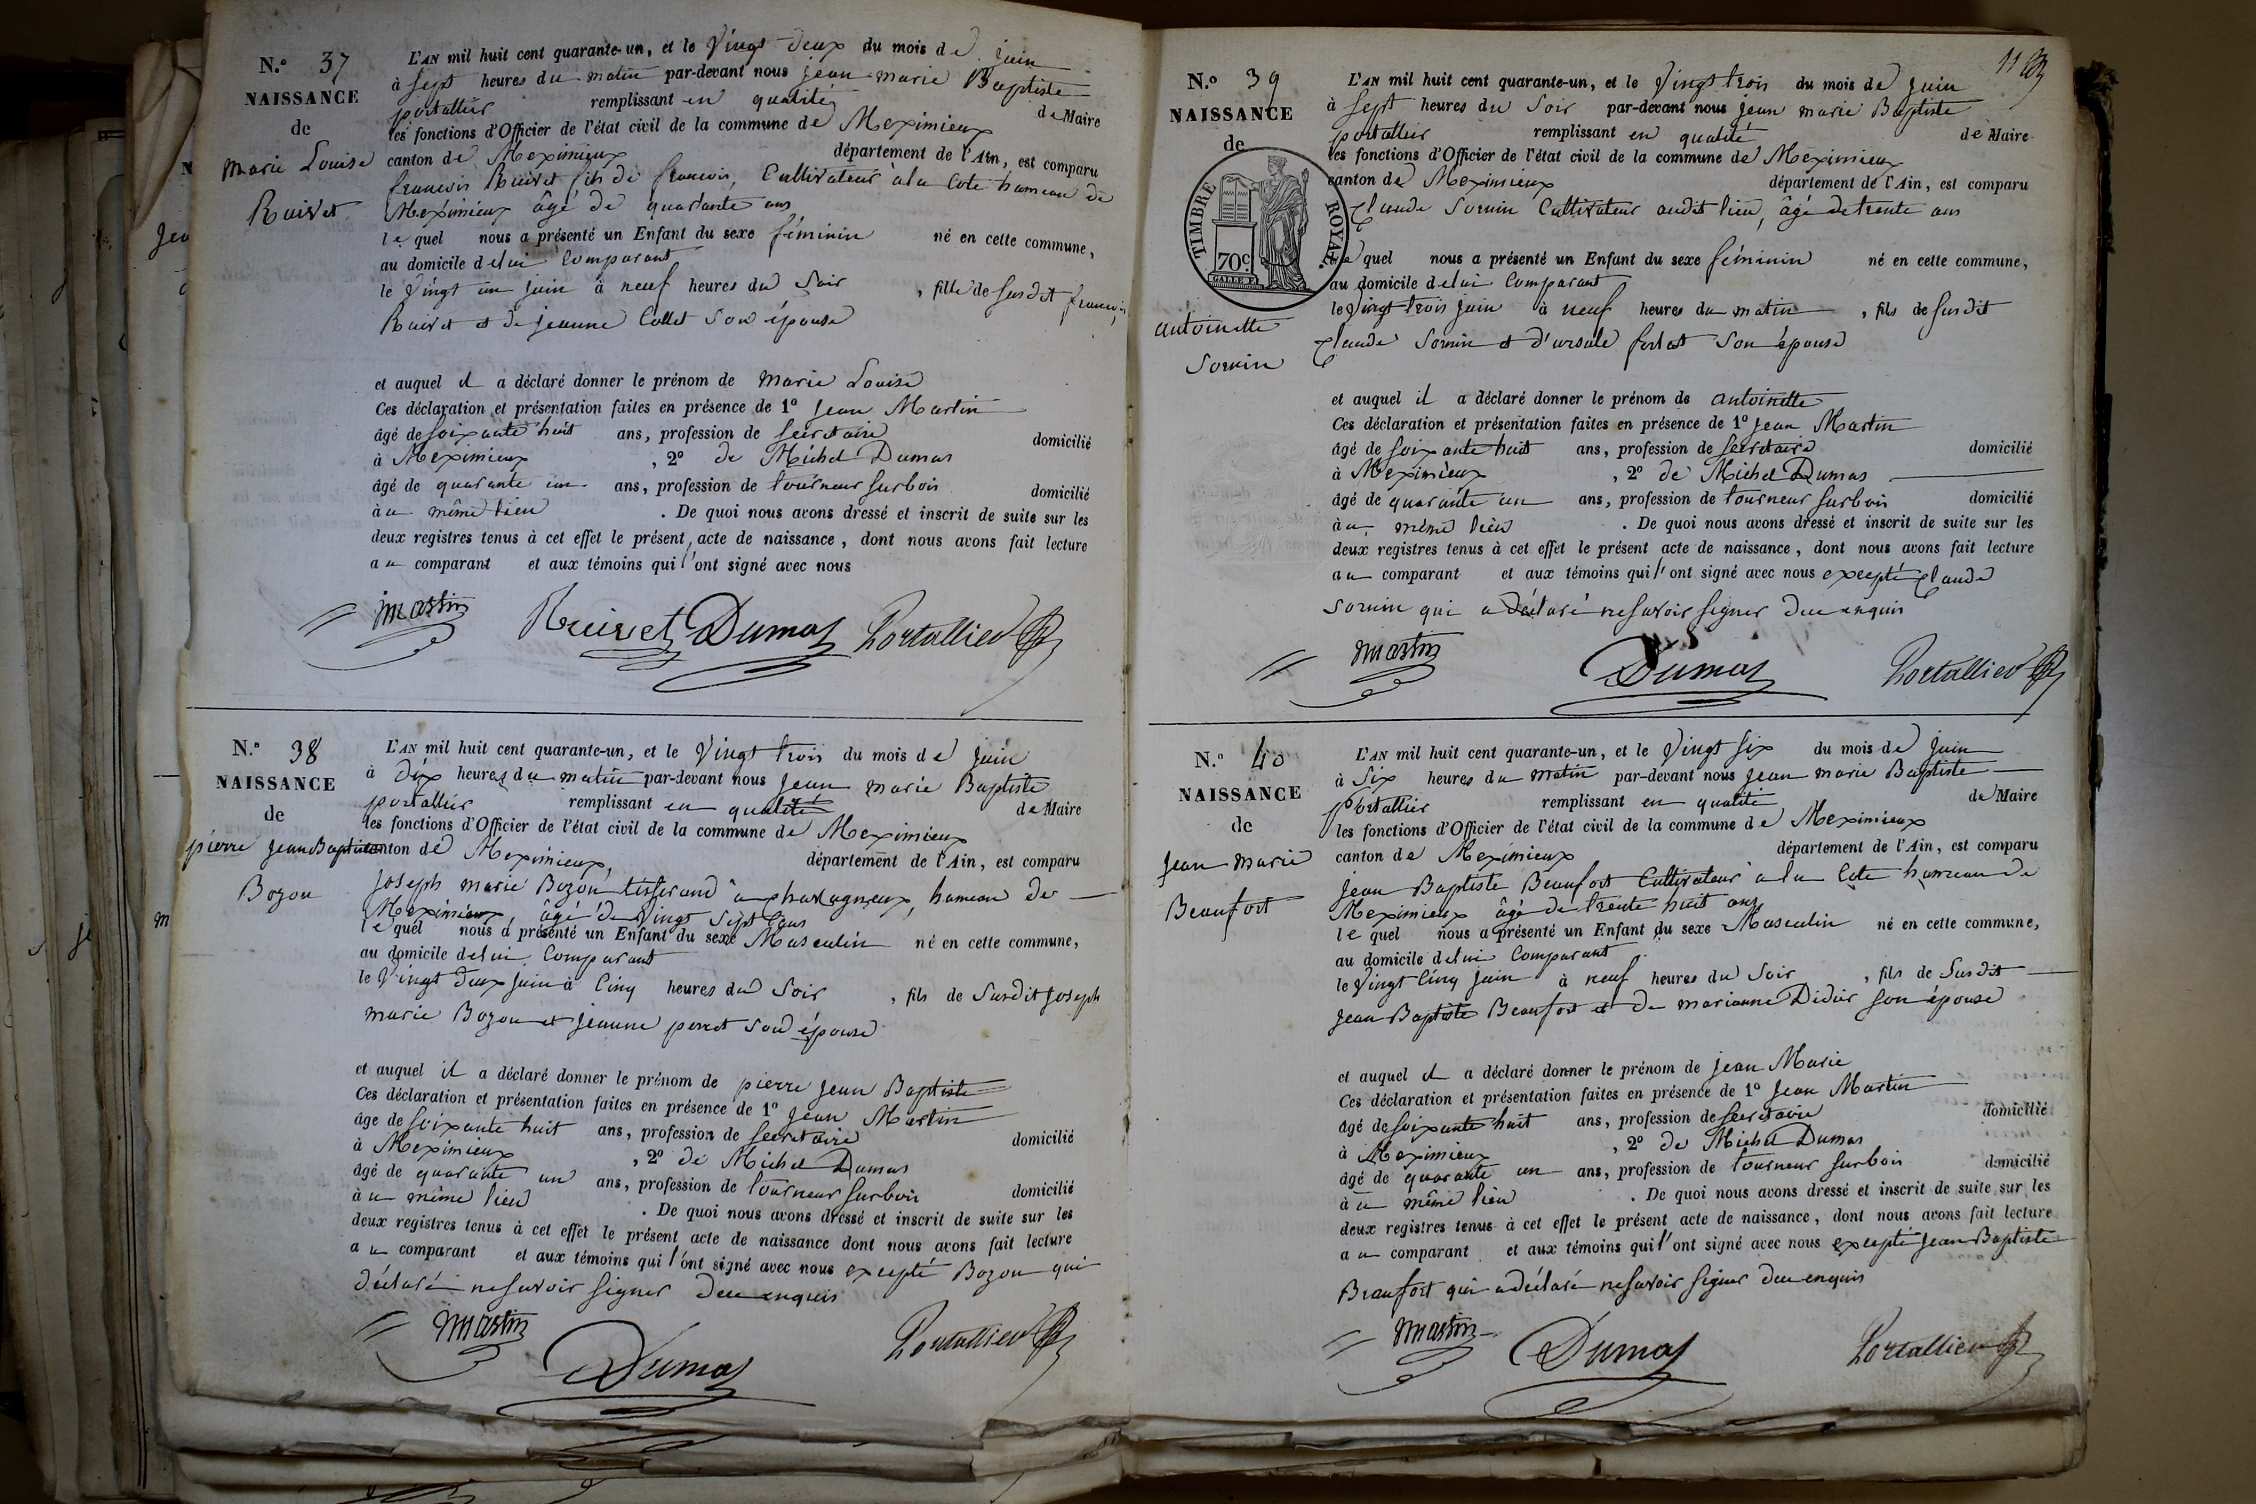 N.º 37
NAISSANCE
de
Marie Louise
Ruivet
L'AN mil huit cent quarante-un, et le Vingt deux du mois de juin
à sept heures du matin par-devant nous jean marie Baptiste
portallier remplissant en qualité de Maire
les fonctions d'Officier de l'état civil de la commune de Meximieux
canton de Meximieux département de l'Ain, est comparu
francois Ruivet fils de francois, Cultivateur à la Cote hameau de
Meximieux agé de quarante ans
le quel nous a présenté un Enfant du sexe féminin né en cette commune,
au domicile de lui Comparant
le Vingt un juin à neuf heures du Soir, fille de Susdit francois
Ruivet et de jeanne Collet son épouse
et auquel il a déclaré donner le prénom de Marie Louise
Ces déclaration et présentation faites en présence de 1º Jean Martin
âgé de soixante huit ans, profession de secretaire domicilié
à Meximieux, 2º de Michel Dumas
âgé de quarante un ans, profession de tourneur sur bois domicilié
à u même lieu. De quoi nous avons dressé et inscrit de suite sur les
deux registres tenus à cet effet le présent acte de naissance, dont nous avons fait lecture
a u comparant et aux témoins qui l'ont signé avec nous
Martin Ruivet Dumas Portallier
N.º 38
NAISSANCE
de
pierre jean Baptiste
Bozon
L'AN mil huit cent quarante-un, et le Vingt trois du mois de juin
à Dix heures du matin par-devant nous jean marie Baptiste
portallier remplissant en qualité de Maire
les fonctions d'Officier de l'état civil de la commune de Meximieux
canton de Meximieux, département de l'Ain, est comparu
Joseph marie Bozon tisserand à charagneux, hameau de
Meximieux, âgé de Vingt Sept ans
le quel nous a présenté un Enfant du sexe Masculin né en cette commune,
au domicile de lui Comparant
le Vingt deux juin à Cinq heures du Soir, fils de Susdit Joseph
marie Bozon et jeanne perret son épouse
et auquel il a déclaré donner le prénom de pierre jean Baptiste
Ces déclaration et présentation faites en présence de 1º Jean Martin
âge de soixante huit ans, profession de secretaire domicilié
à Meximieux, 2º de Michel Dumas
âgé de quarante un ans, profession de tourneur sur bois domicilié
à u même lieu. De quoi nous avons dressé et inscrit de suite sur les
deux registres tenus à cet effet le présent acte de naissance dont nous avons fait lecture
a u comparant et aux témoins qui l'ont signé avec nous excepté Bozon qui
déclaré ne savoir signer de ce enquis
Martin Dumas Portallier
11
N.º 39
NAISSANCE
de
TIMBRE ROYAL.
70c.
antoinette
Sornin
L'AN mil huit cent quarante-un, et le Vingt trois du mois de juin
à Sept heures du Soir par-devant nous jean marie Baptiste
portallier remplissant en qualité de Maire
les fonctions d'Officier de l'état civil de la commune de Meximieux
canton de Meximieux département de l'Ain, est comparu
Claude Sornin Cultivateur audit lieu, âgé de trente ans
le quel nous a présenté un Enfant du sexe féminin né en cette commune,
au domicile de lui Comparant
le Vingt trois juin à neuf heures du matin, fils de Susdit
Claude Sornin et d'ursule forest son épouse
et auquel il a déclaré donner le prénom de antoinette
Ces déclaration et présentation faites en présence de 1º Jean Martin
âgé de soixante huit ans, profession de secretaire domicilié
à Meximieux, 2º de Michel Dumas
âgé de quarante un ans, profession de tourneur sur bois domicilié
à u même lieu. De quoi nous avons dressé et inscrit de suite sur les
deux registres tenus à cet effet le présent acte de naissance, dont nous avons fait lecture
a u comparant et aux témoins qui l'ont signé avec nous excepté Claude
Sornin qui a déclaré ne savoir signer de ce enquis
Martin Dumas Portallier
N.º 40
NAISSANCE
de
Jean Marie
Beaufort
L'AN mil huit cent quarante-un, et le Vingt Six du mois de juin
à Six heures du matin par-devant nous jean marie Baptiste
portallier remplissant en qualité de Maire
les fonctions d'Officier de l'état civil de la commune de Meximieux
canton de Meximieux département de l'Ain, est comparu
jean Baptiste Beaufort Cultivateur à la Cote hameau de
Meximieux âgé de trente huit ans
le quel nous a présenté un Enfant du sexe Masculin né en cette commune,
au domicile de lui Comparant
le Vingt Cinq juin à neuf heures du Soir, fils de Susdit
jean Baptiste Beaufort et de marianne Didier son épouse
et auquel il a déclaré donner le prénom de jean Marie
Ces déclaration et présentation faites en présence de 1º Jean Martin
âgé de soixante huit ans, profession de secretaire domicilié
à Meximieux, 2º de Michel Dumas
âgé de quarante un ans, profession de tourneur sur bois domicilié
à u même lieu. De quoi nous avons dressé et inscrit de suite sur les
deux registres tenus à cet effet le présent acte de naissance, dont nous avons fait lecture
a u comparant et aux témoins qui l'ont signé avec nous excepté jean Baptiste
Beaufort qui a déclaré ne savoir signer de ce enquis
Martin Dumas Portallier